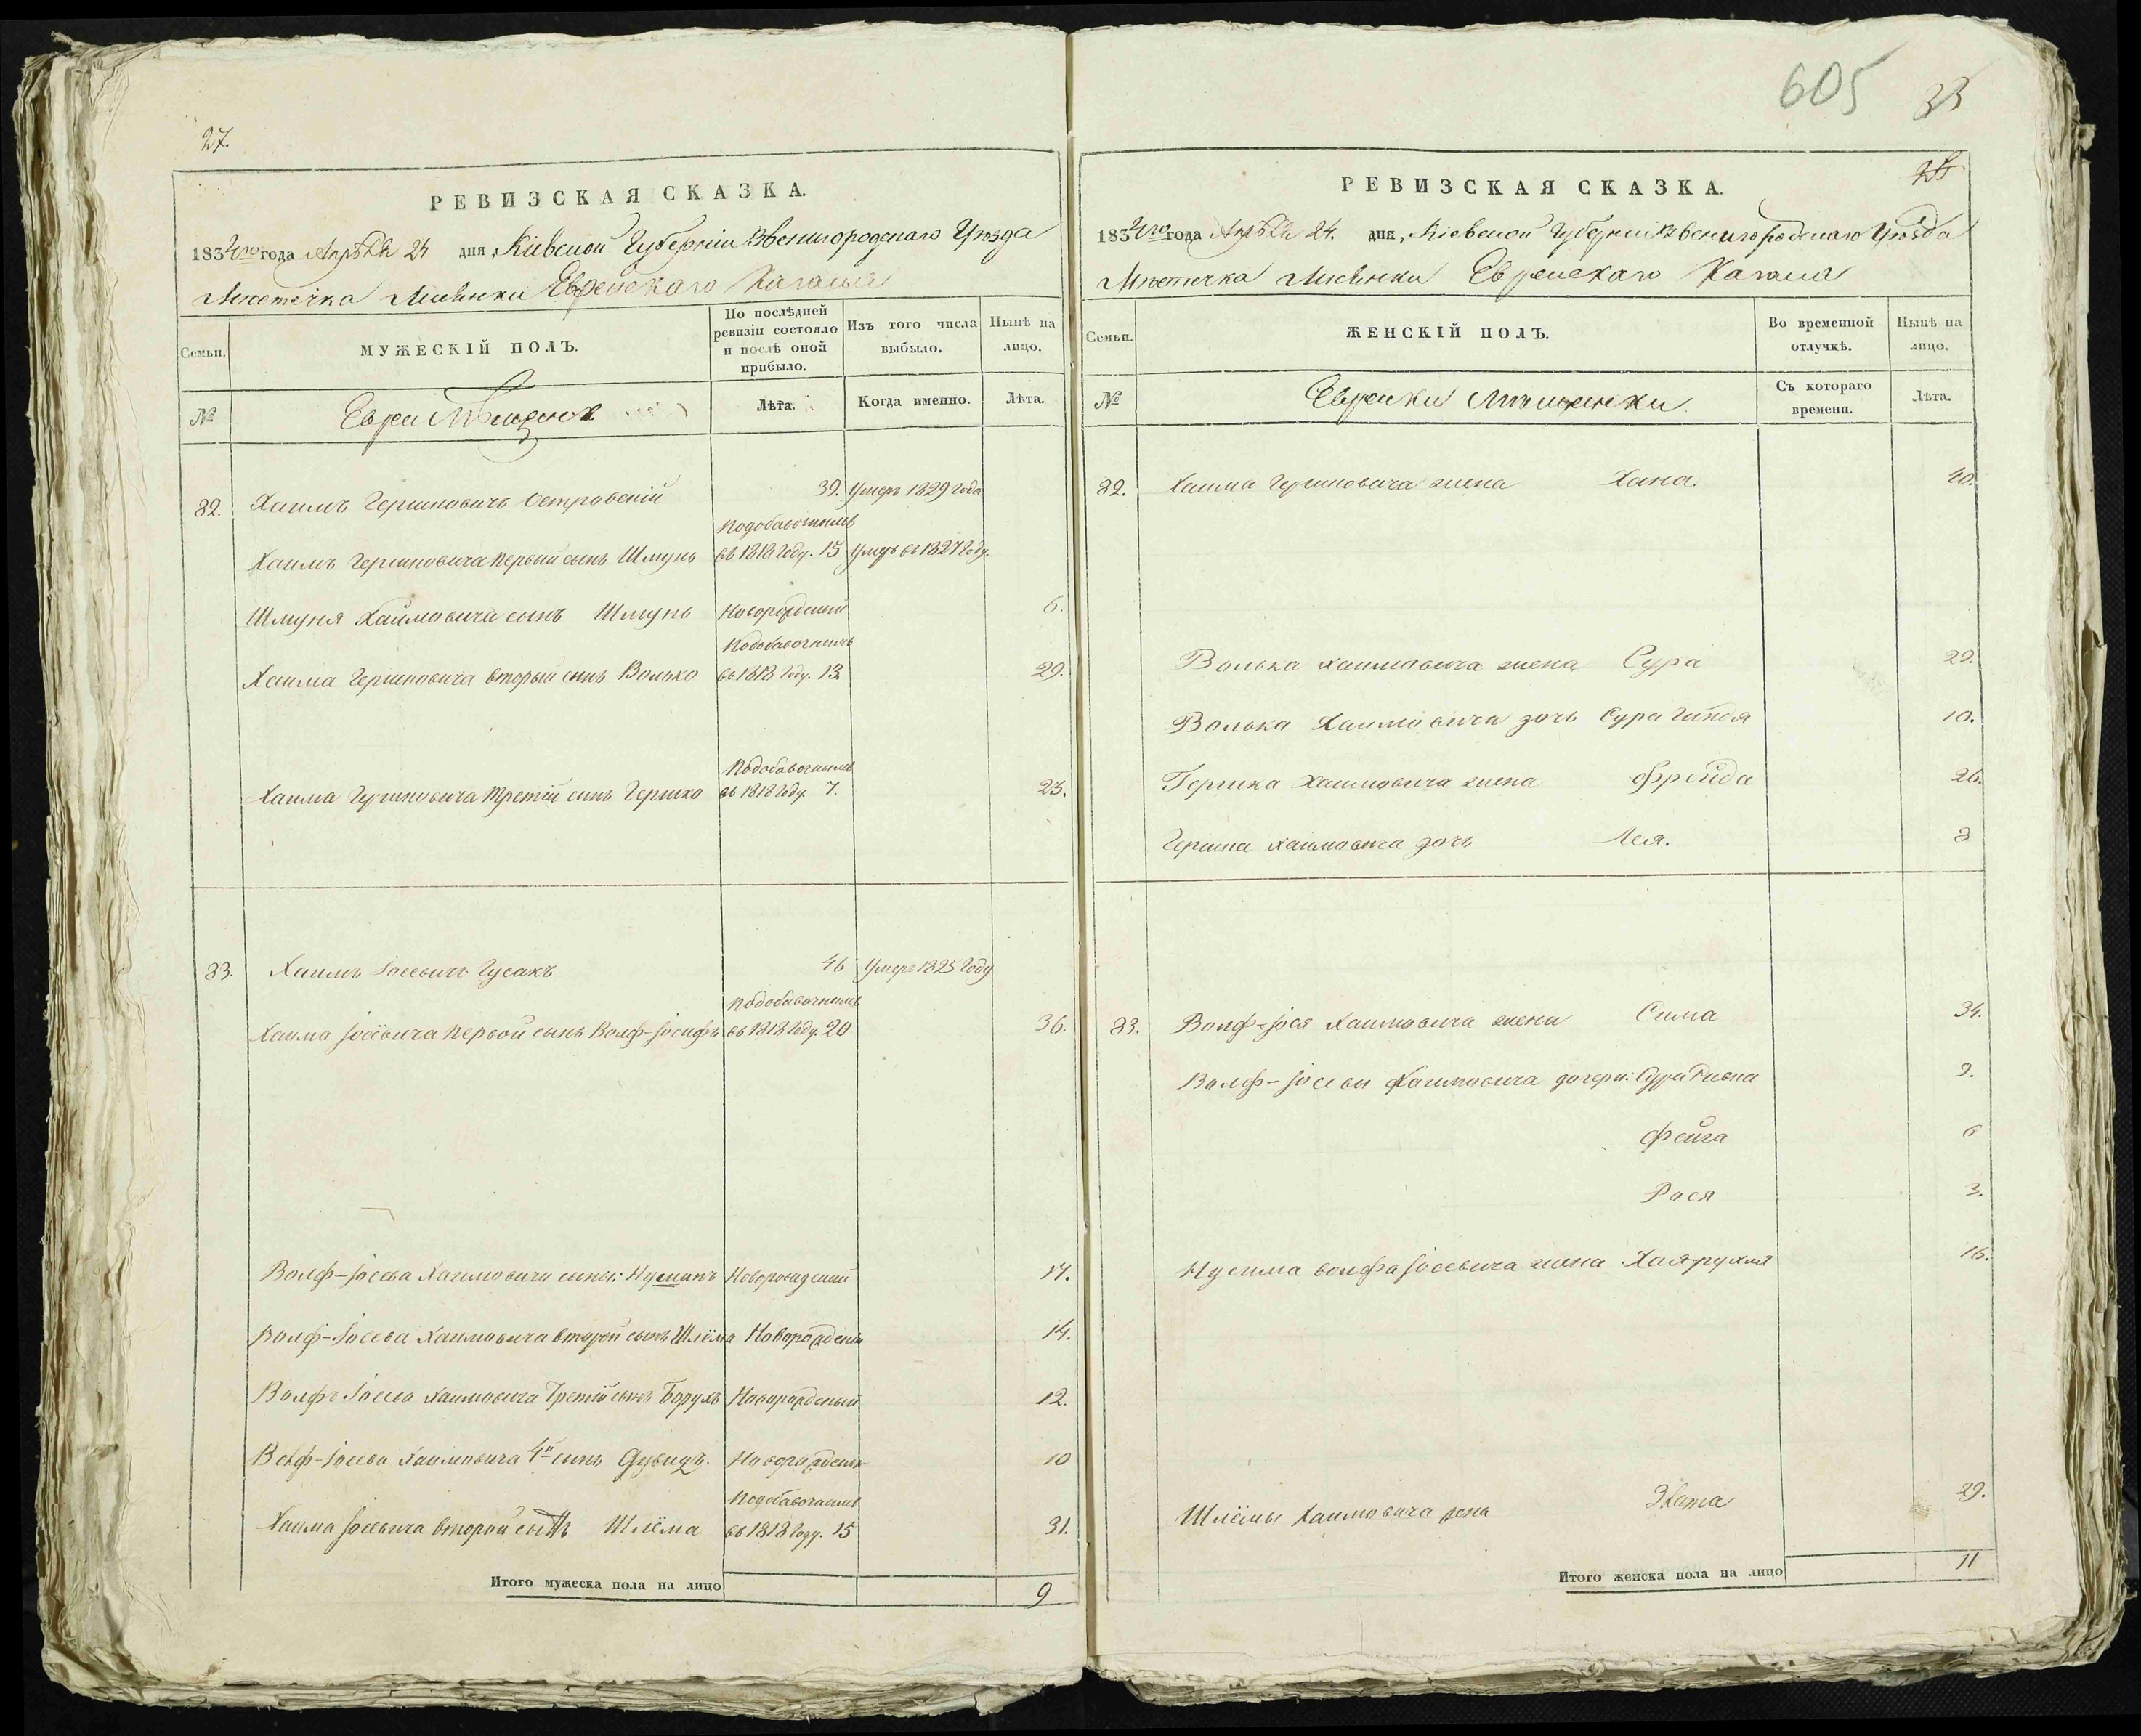 27.
РЕВИЗСКАЯ СКАЗКА.
1834го года Апрѣля 24 дня, Кіевской Губерніи Звенигородскаго Уѣзда
Мѣстечка Лисянки Еврейскаго Кагала
Семьи.
МУЖЕСКІЙ ПОЛЪ.
По послѣдней ревизіи состояло и послѣ оной прибыло.
Изъ того числа выбыло.
Нынѣ на лицо.
№
Евреи Мѣщане
Лѣта.
Когда именно.
Лѣта.
82. Хаимъ Гершковичъ Островскій 39. Умеръ 1829 года
Подобавочнымъ
Хаимъ Гершковича первый сынъ Шмунь въ 1818 Году. 15 Умеръ въ 1827 Году.
Шмуня Хаймовича сынъ Шмунь Новорожденный 6.
Подобавочнымъ
Хаима Гершковича вторый сынъ Волько въ 1818 Году. 13. 29.
Подобавочнымъ
Хаима Гершковича третій сынъ Гершко въ 1818 Году. 7. 23.
83. Хаимъ Іосевичъ Гусакъ 46 Умеръ 1825 Году
Подобавочнымъ
Хаима Іосевича первой сынъ Волф-Іосифъ въ 1818 Году. 20 36.
Волф-Іосева Хаимовича сыны: Нусимъ Новорожденый 17.
Волф-Іосева Хаимовича второй сынъ Шлёма Новорожденый 14.
Волфъ Іосева Хаимовича Третій сынъ Борухъ Новорожденый 12.
Волф-Іосева Хаимовича 4й сынъ Дувидъ. Новорожденый 10
Подобавочнымъ
Хаима Іосевича второй сынъ Шлёма въ 1818 Году. 15 31.
Итого мужеска пола на лицо 9
605
РЕВИЗСКАЯ СКАЗКА.
1834го года Апрѣля 24. дня, Кіевской Губерніи Звенигородскаго Уѣзда
Мѣстечка Лисянки Еврейскаго Кагала
Семьи.
ЖЕНСКІЙ ПОЛЪ.
Во временной отлучкѣ.
Нынѣ на лицо.
№
Еврейки Мѣщанки.
Съ котораго времени.
Лѣта.
82. Хаима Гершковича жена Хана. 40.
Волька Хаимовича жена Сура 29.
Волька Хаимовича дочь Сура Гиндя 10.
Гершка Хаимовича жена Фрейда 26.
Гершка Хаимовича дочь Лея. 8
83. Волф-Іося Хаимовича жена Сима 34.
Волф-Іосевы Хаимовича дочери: Сура Ривка 9.
Фейга 6
Рося 3.
Нусима Волфа Іосевича жена Хая-рухля 16.
Шлёмы Хаимовича жена Злата 29.
Итого женска пола на лицо 11